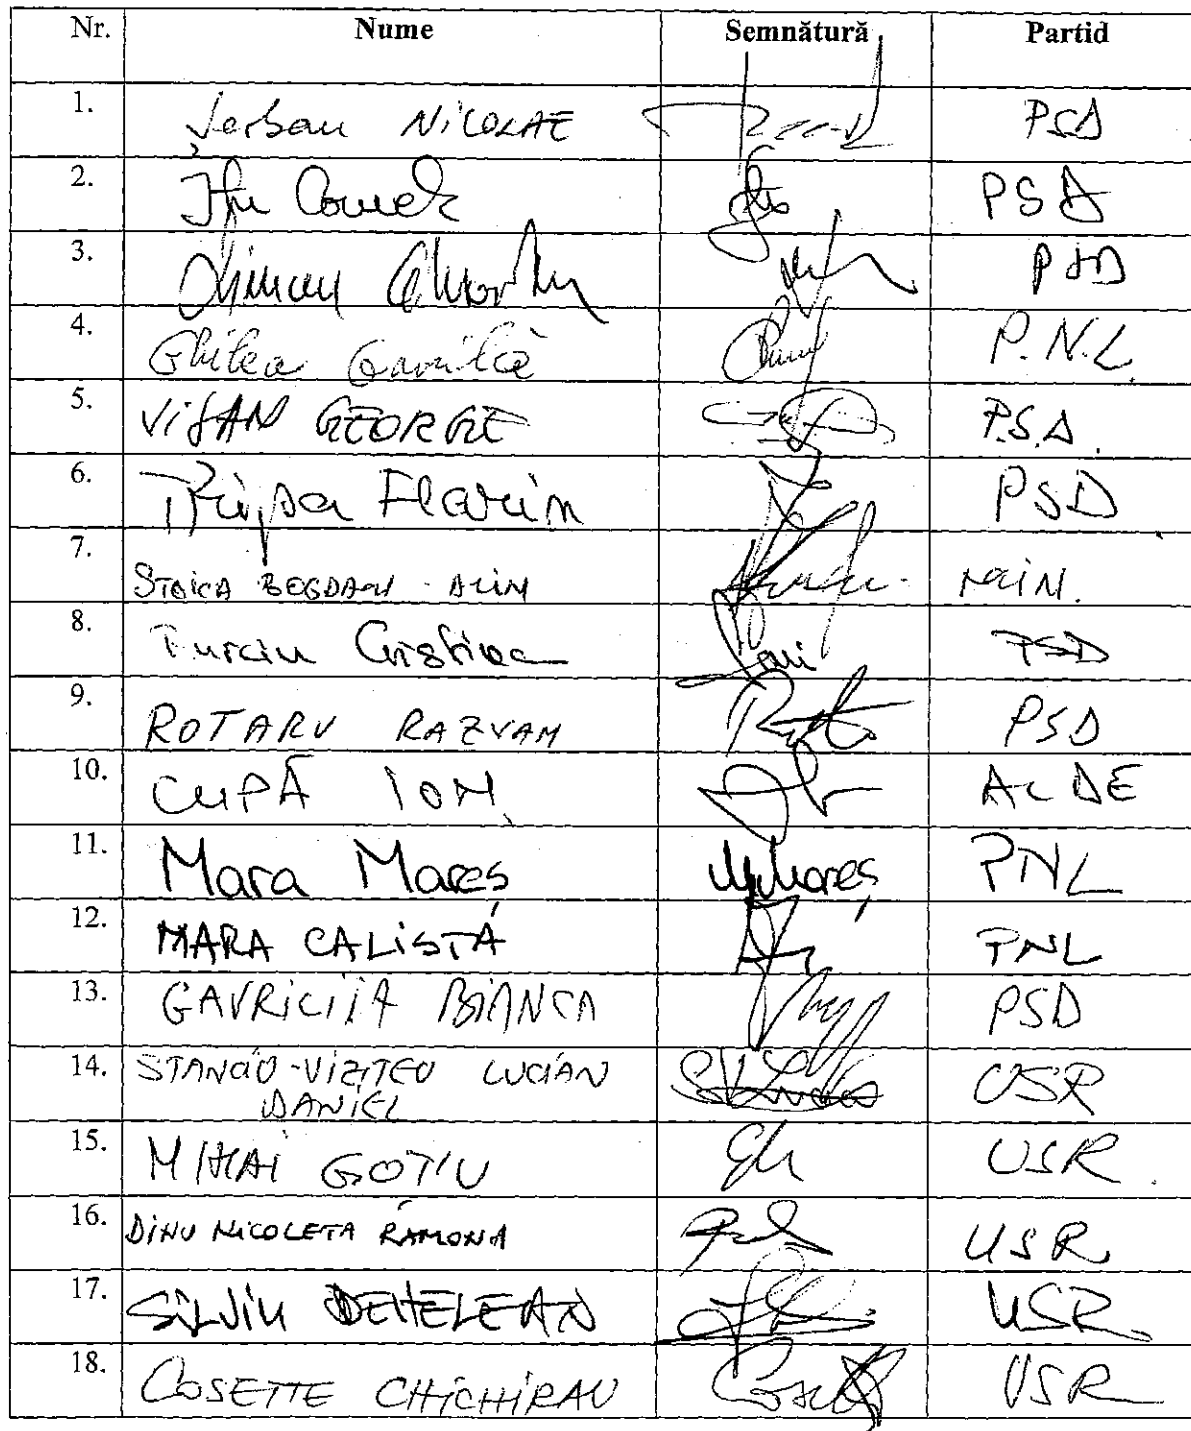 Nr. Nume Semnătură Partid
1. Șerban NICOLAE PSD
2. Ițu Cornel PSD
3. PSD
4. Ghilea Găvrilă P.N.L.
5. VIȘAN GEORGE P.S.D.
6. Tripșa Florin PSD
7. STOICA BOGDAN - ALIN MIN.
8. Burciu Cristina PSD
9. ROTARU RAZVAN PSD
10. CUPĂ ION ALDE
11. Mara Mareș MMareș PNL
12. MARA CALISTĂ PNL
13. GAVRILIȚĂ BIANCA PSD
14. STANCIU-VIZITEU LUCIAN USR
DANIEL
15. MIHAI GOȚIU USR
16. DINU NICOLETA RAMONA USR
17. SILVIU DEHELEAN USR
18. COSETTE CHICHIRAU USR